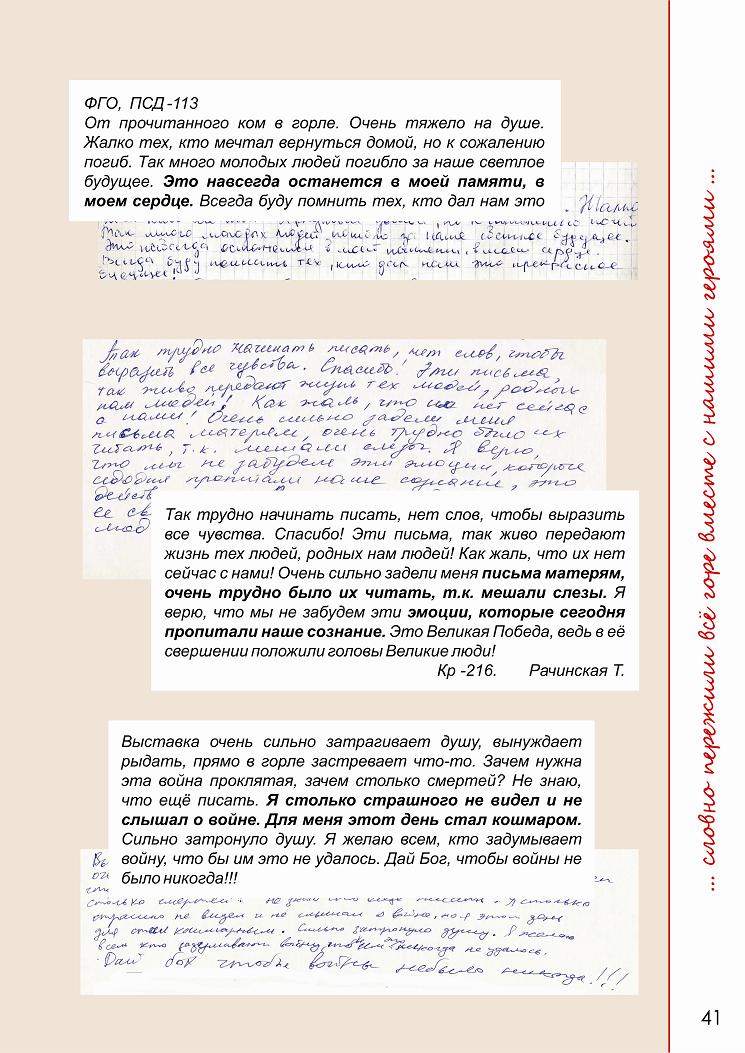 ФГО, ПСД-113
От прочитанного ком в горле. Очень тяжело на душе.
Жалко тех, кто мечтал вернуться домой, но к сожалению
погиб. Так много молодых людей погибло за наше светлое
будущее. Это навсегда останется в моей памяти, в
моем сердце. Всегда буду помнить тех, кто дал нам это
. Жалко
Так много молодых людей погибло за наше светлое будущее.
Это навсегда останется в моей памяти, в моем сердце.
Всегда буду помнить тех, кто дал нам это прекрасное
будущее!
Так трудно начинать писать, нет слов, чтобы
выразить все чувства. Спасибо! Эти письма,
так живо передают жизнь тех людей, родных
нам людей! Как жаль, что их нет сейчас
с нами! Очень сильно задели меня
письма матерям, очень трудно было их
читать, т.к. мешали слезы. Я верю,
что мы не забудем эти эмоции, которые
сегодня пропитали наше сознание, это
дейст
ее св
люд
Так трудно начинать писать, нет слов, чтобы выразить
все чувства. Спасибо! Эти письма, так живо передают
жизнь тех людей, родных нам людей! Как жаль, что их нет
сейчас с нами! Очень сильно задели меня письма матерям,
очень трудно было их читать, т.к. мешали слезы. Я
верю, что мы не забудем эти эмоции, которые сегодня
пропитали наше сознание. Это Великая Победа, ведь в её
свершении положили головы Великие люди!
Кр -216. Рачинская Т.
Выставка очень сильно затрагивает душу, вынуждает
рыдать, прямо в горле застревает что-то. Зачем нужна
эта война проклятая, зачем столько смертей? Не знаю,
что ещё писать. Я столько страшного не видел и не
слышал о войне. Для меня этот день стал кошмаром.
Сильно затронуло душу. Я желаю всем, кто задумывает
войну, что бы им это не удалось. Дай Бог, чтобы войны не
было никогда!!!
Вы
столько смертей. не знаю что еще писать. Я столько
страшно не видел и не слышал о война, но я этот день
для стал кошмарным. Сильно затронуло душу. Я желаю
всем кто задумывает войну никогда не удалось.
Дай бох чтобы войны небыло никогда!!!
... словно пережили всё горе вместе с нашими героями ...
41